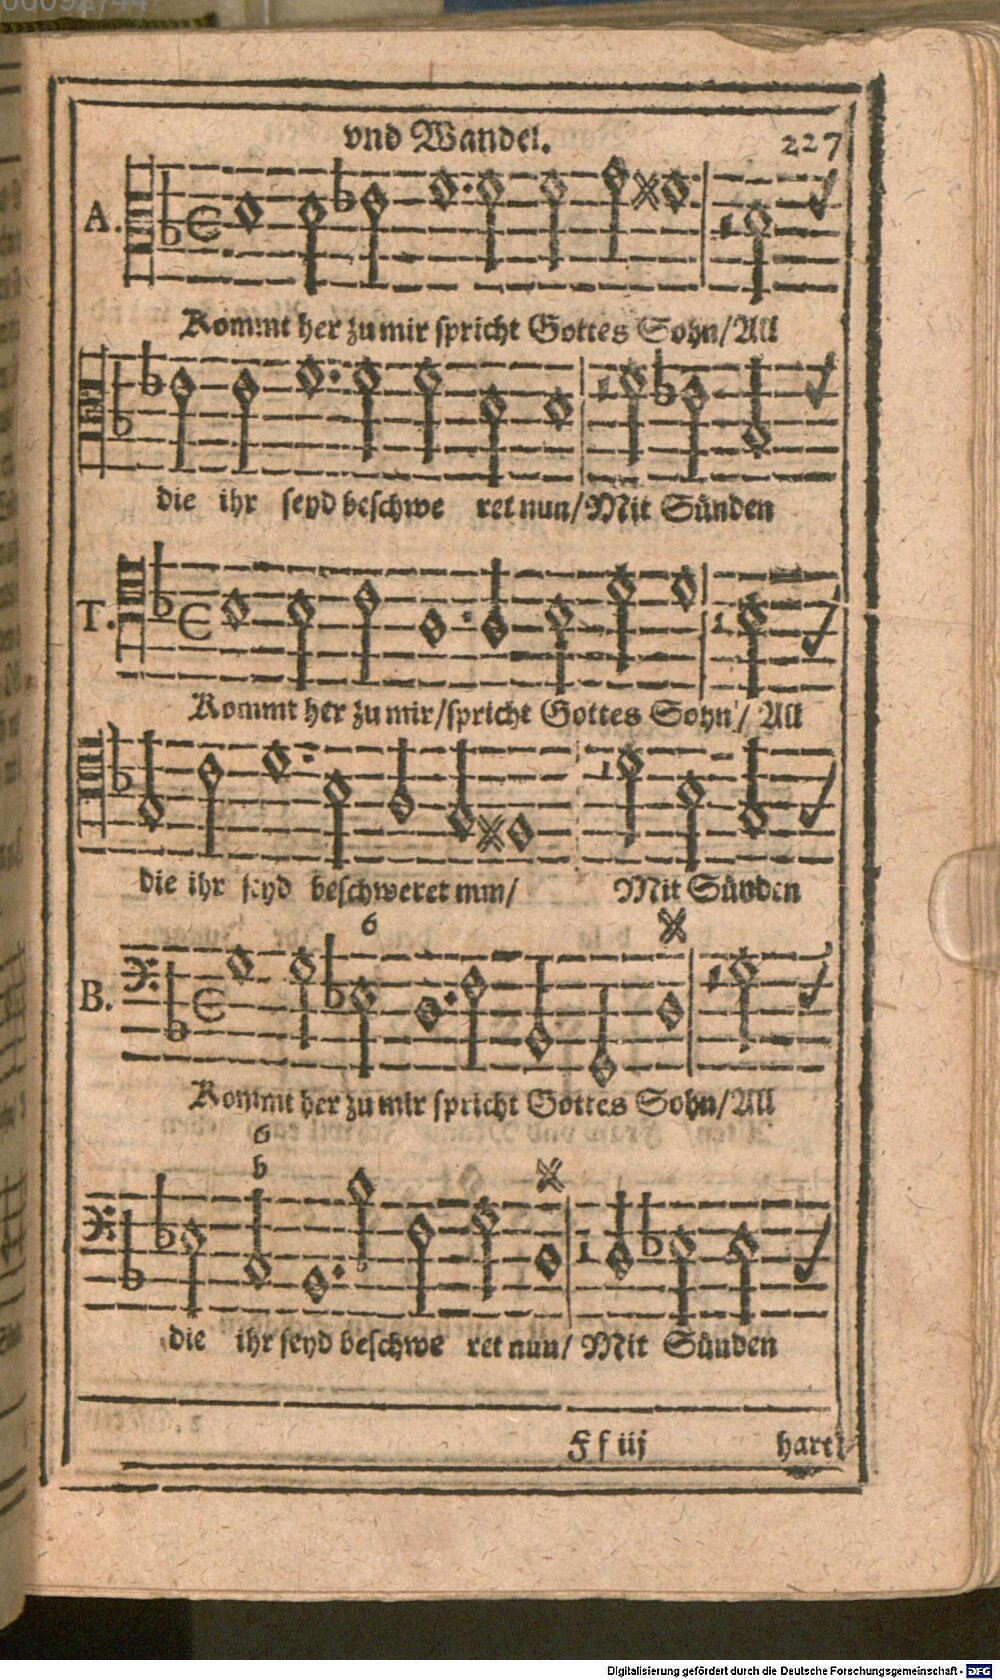 vnd Wandel.
227
A.
Kommt her zu mir spricht Gottes Sohn/All
die ihr seyd beschwe ret nun/Mit Sünden
T.
Kommt her zu mir/spricht Gottes Sohn/ All
die ihr seyd beschweret nun/ Mit Sünden
6
B.
Kommt her zu mir spricht Gottes Sohn/All
6
b
die ihr seyd beschwe ret nun/ Mit Sünden
F f iij
hart
Digitalisierung gefördert durch die Deutsche Forschungsgemeinschaft - DFG